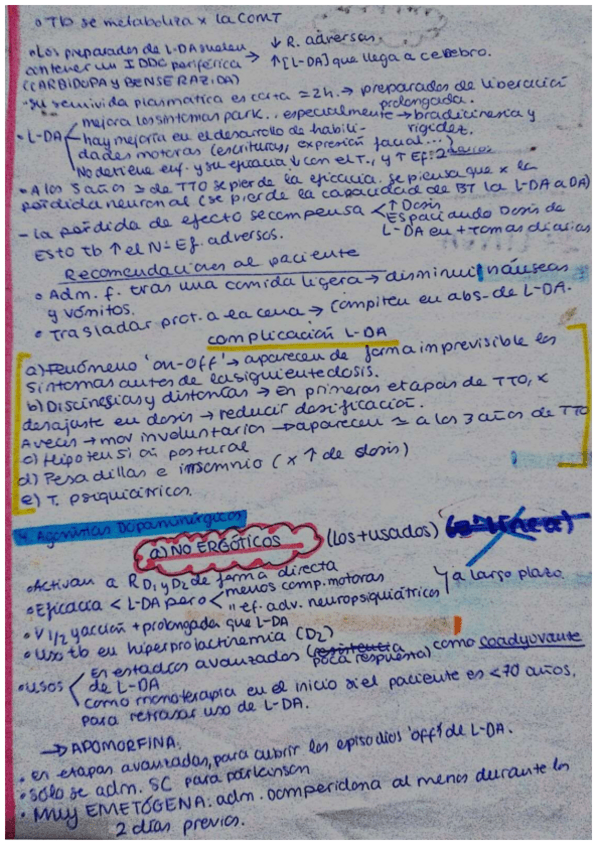 • Tb se metaboliza x la COMT
• Los preparados de L-DA suelen contener un IDDC periférica (CARBIDOPA y BENSERAZIDA) → ↓ R. adversas.
↑ [L-DA] que llega a cerebro.
- Su semivida plasmática es corta ≃ 2h. → preparados de liberación prolongada.
• L-DA
mejora los sintomas park.. especialmente → bradicinesia y rigidez.
hay mejoria en el desarrollo de habilidades motoras (escritura, expresión facial...)
No detiene enf. y su eficacia ↓ con el T., y ↑ Ef. 2ªdarios
• A los 5 años de TTO se pierde la eficacia. se piensa que x la
pérdida neuronal (se pierde la capacidad de BT la L-DA a DA)
- La pérdida de efecto se compensa
↑ Dosis
Espaciando Dosis de
L-DA en + tomas diarias
Esto tb ↑ el Nº Ef. adversos.
Recomendaciones al paciente
• Adm. f. tras una comida ligera → disminuir náuseas
y vómitos.
• Trasladar prot. a la cena → compiten en abs. de L-DA.
complicación L-DA
a) Fenómeno 'on-off' → aparecen de forma imprevisible los
sintomas antes de la siguiente dosis.
b) Discinesias y distonías → en primeras etapas de TTO, x
desajuste en dosis → reducir dosificación.
A veces → mov involuntarios → aparecen ≃ a los 3 años de TTO
c) Hipotensión postural
d) Pesadillas e insomnio (x ↑ de dosis)
e) T. psiquiátricos.
4. Agonistas Dopaminérgicos
a) NO ERGÓTICOS (Los + usados)
• Activan a R D1 y D2 de forma directa
• Eficacia < L-DA pero
menos comp. motoras
" ef. adv. neuropsiquiátricos
y a largo plazo
• V 1/2 y acción + prolongada que L-DA
• uso tb en hiperprolactinemia (D2)
• usos
En estadíos avanzados (resistencia poca respuesta) como coadyuvante
de L-DA
como monoterapia en el inicio si el paciente es < 70 años.
para retrasar uso de L-DA.
→ APOMORFINA.
• en etapas avanzadas, para cubrir los episodios 'off' de L-DA.
• solo se adm. SC para parkinson
• MUY EMETÓGENA: adm. domperidona al menos durante los
2 días previos.